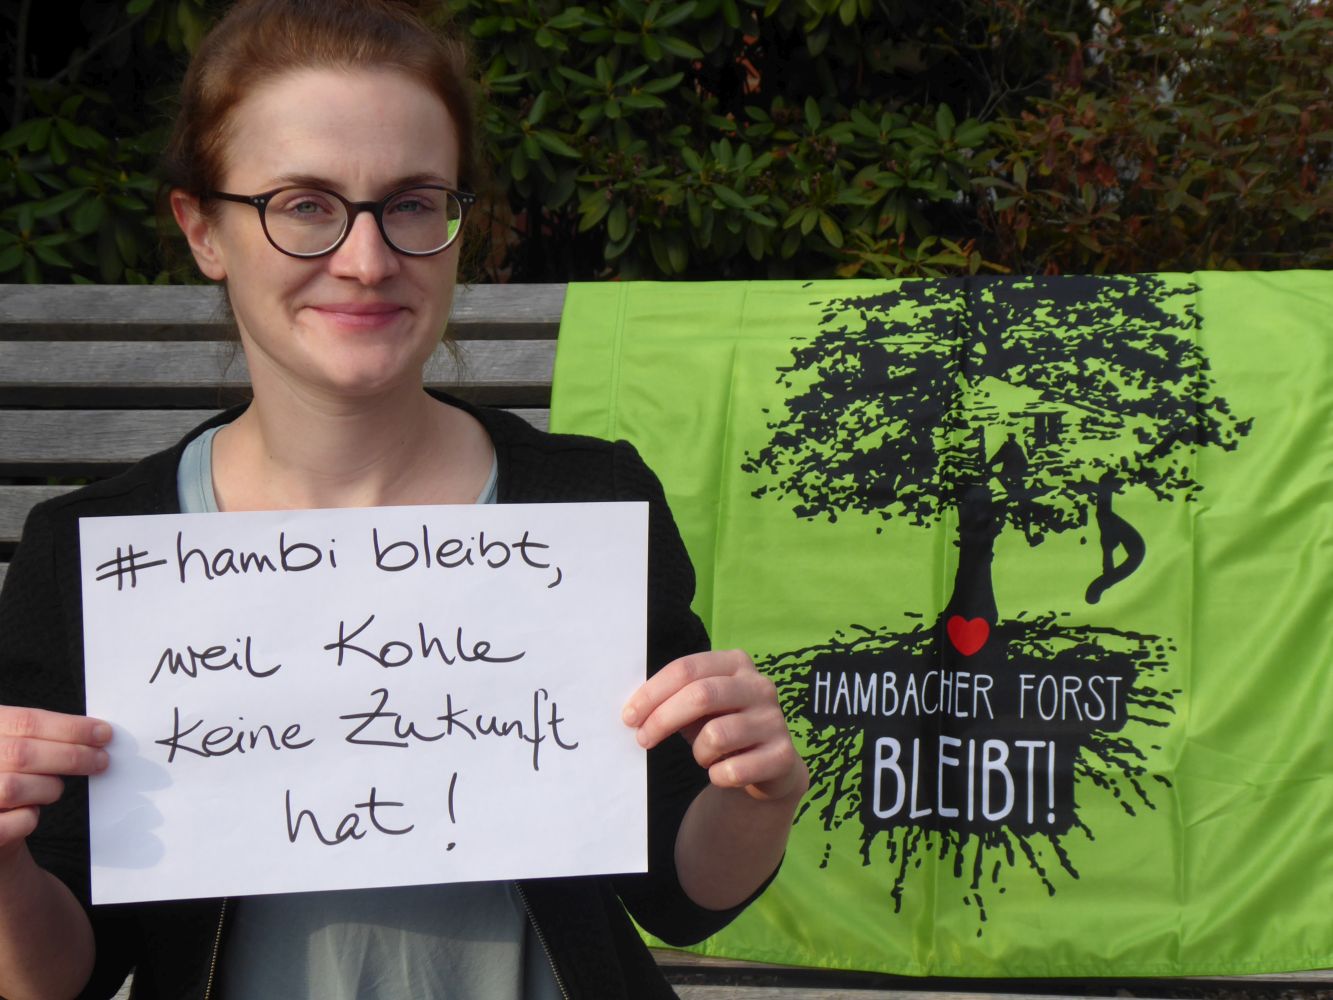 #hambi bleibt,
weil Kohle
keine Zukunft
hat!
HAMBACHER FORST
BLEIBT!